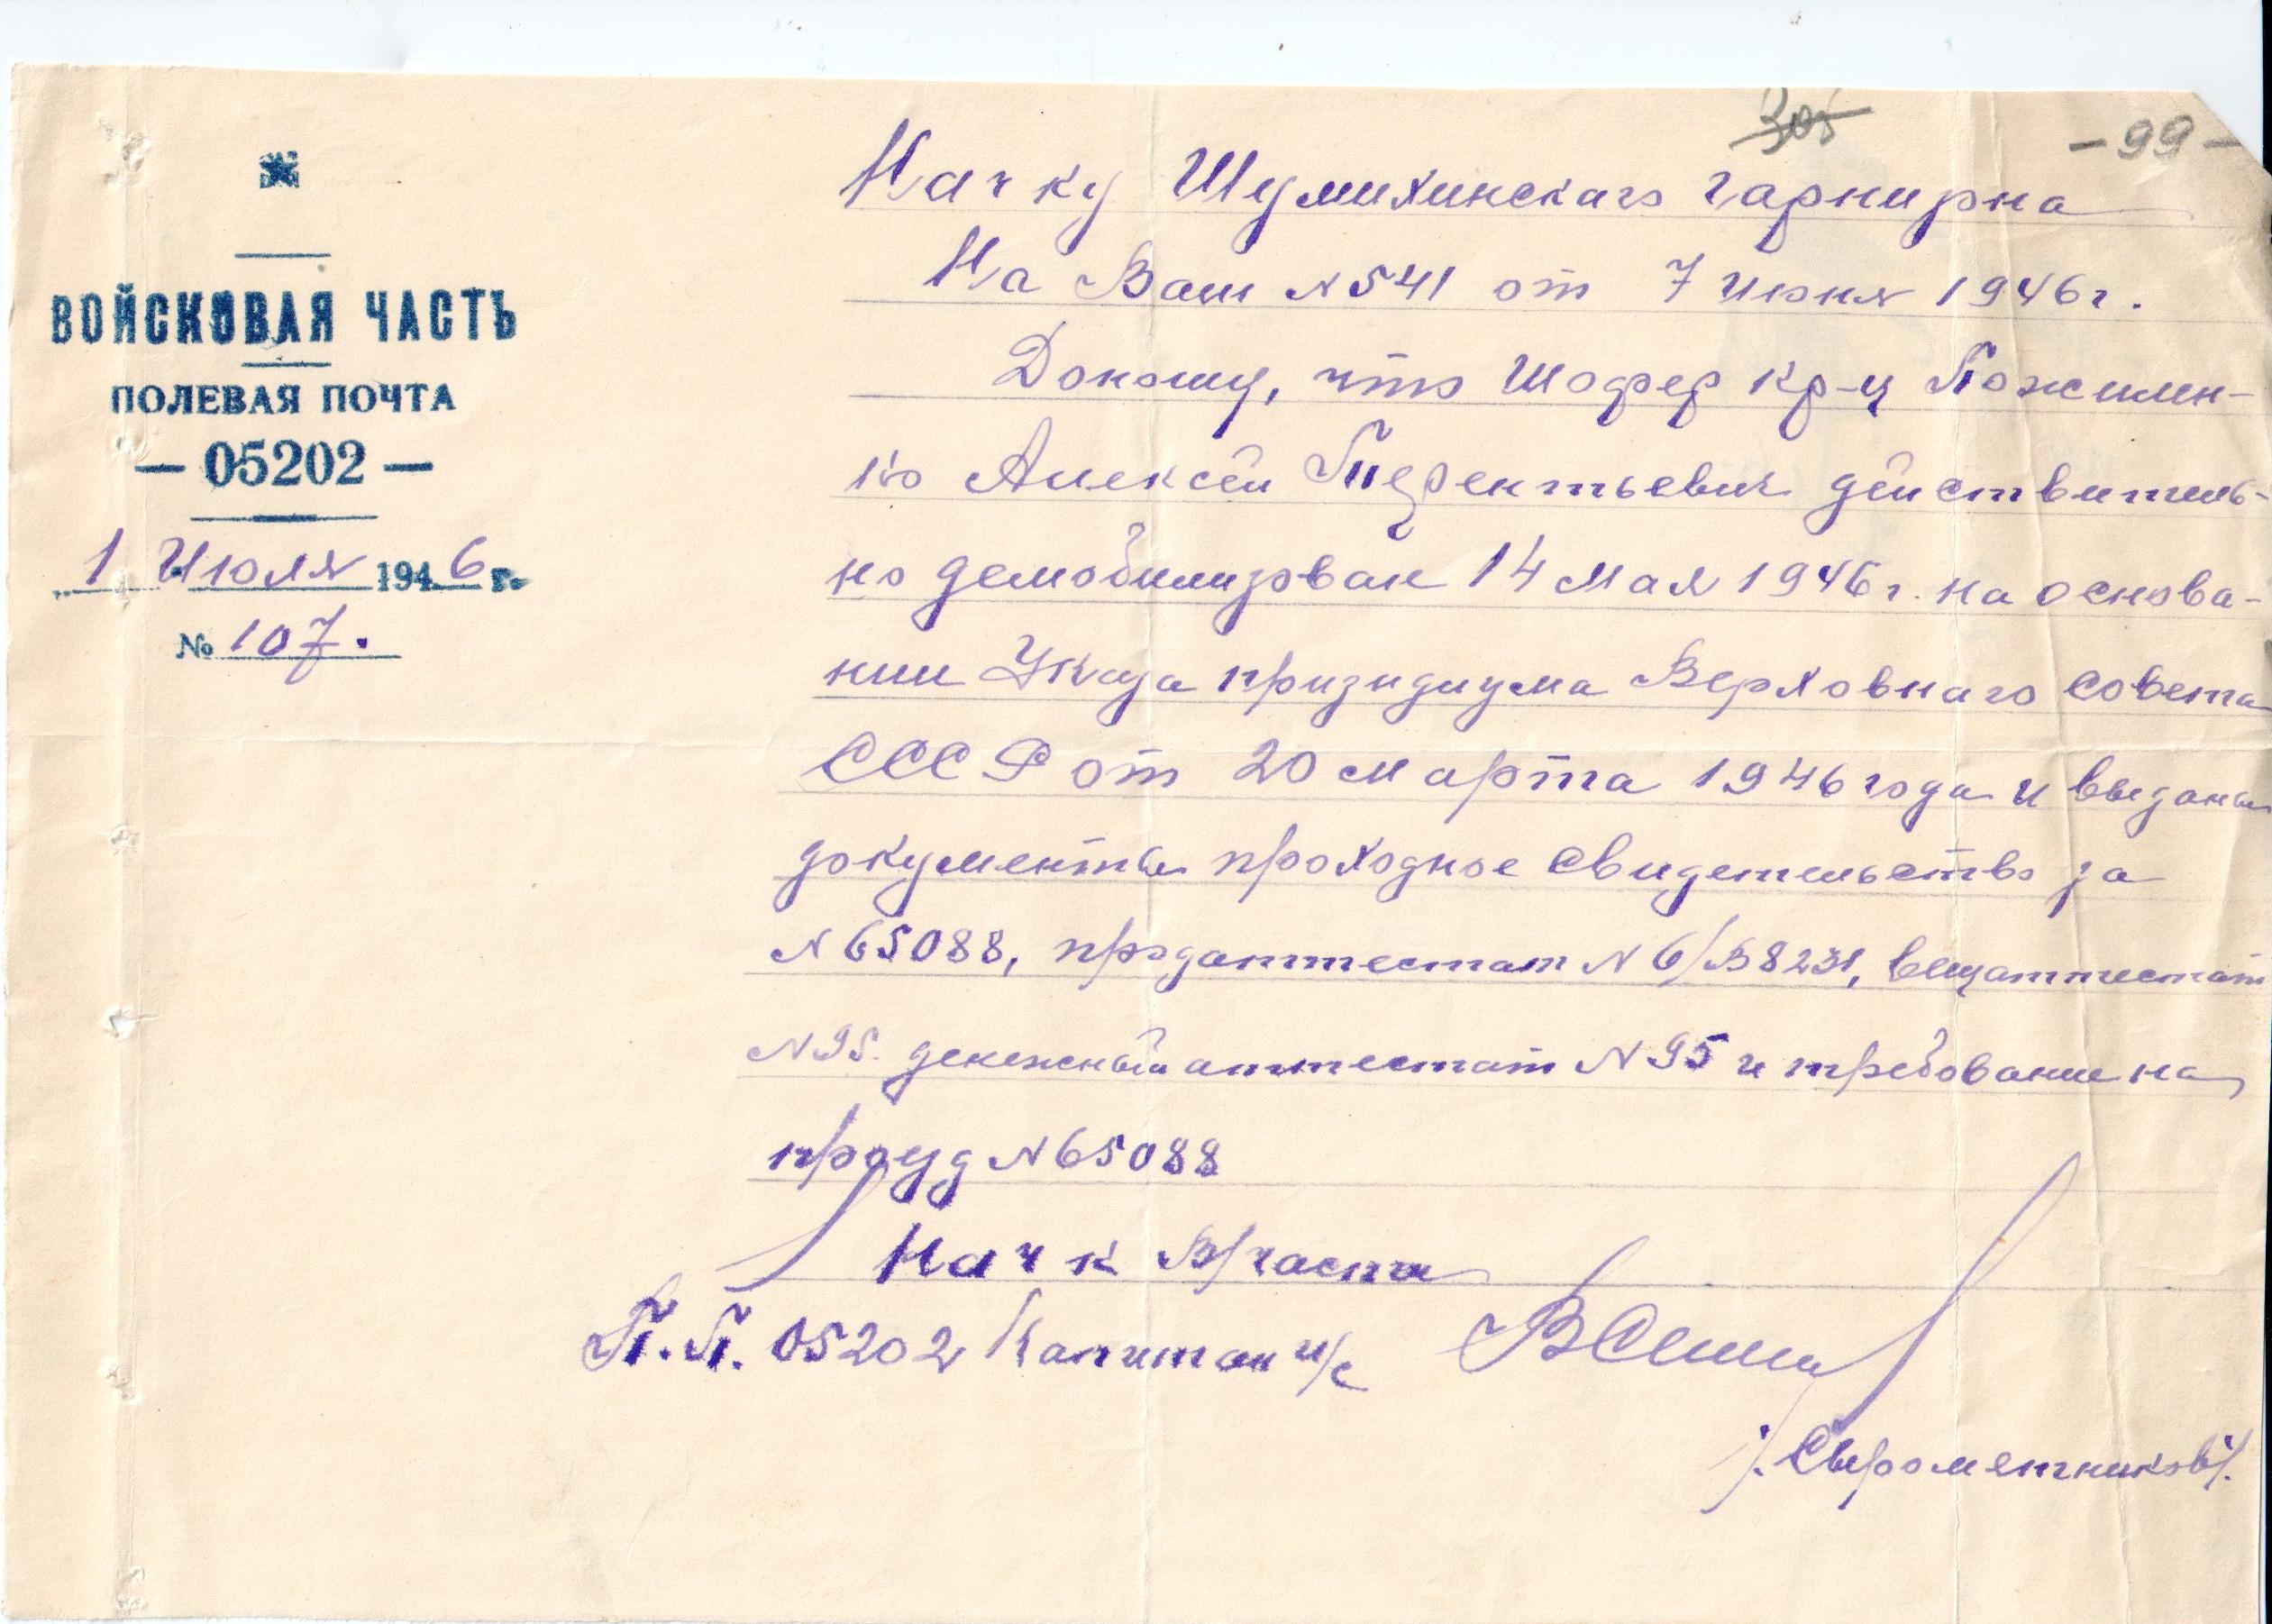 305
-99-
ВОЙСКОВАЯ ЧАСТЬ
ПОЛЕВАЯ ПОЧТА
— 05202 —
1 Июля 1946 г.
№ 107.
Начку Шумихинскаго гарнизона
На Ваш N 541 от 7 Июня 1946 г.
Доношу, что Шофер кр-ц
Алексей Терентьевич действитель-
но демобилизован 14 мая 1946 г. на основа-
нии Указа призидиума Верховнаго совета
СССР от 20 марта 1946 года и выданы
документы проходное свидетельство за
N 65088, продаттестат N 6/В8231, вещаттестат
N 95. денежный аттестат N 95 и требование на
N 65088
Начк В/части
П.П. 05202 Капитан и/с
/.Сыромятников/.